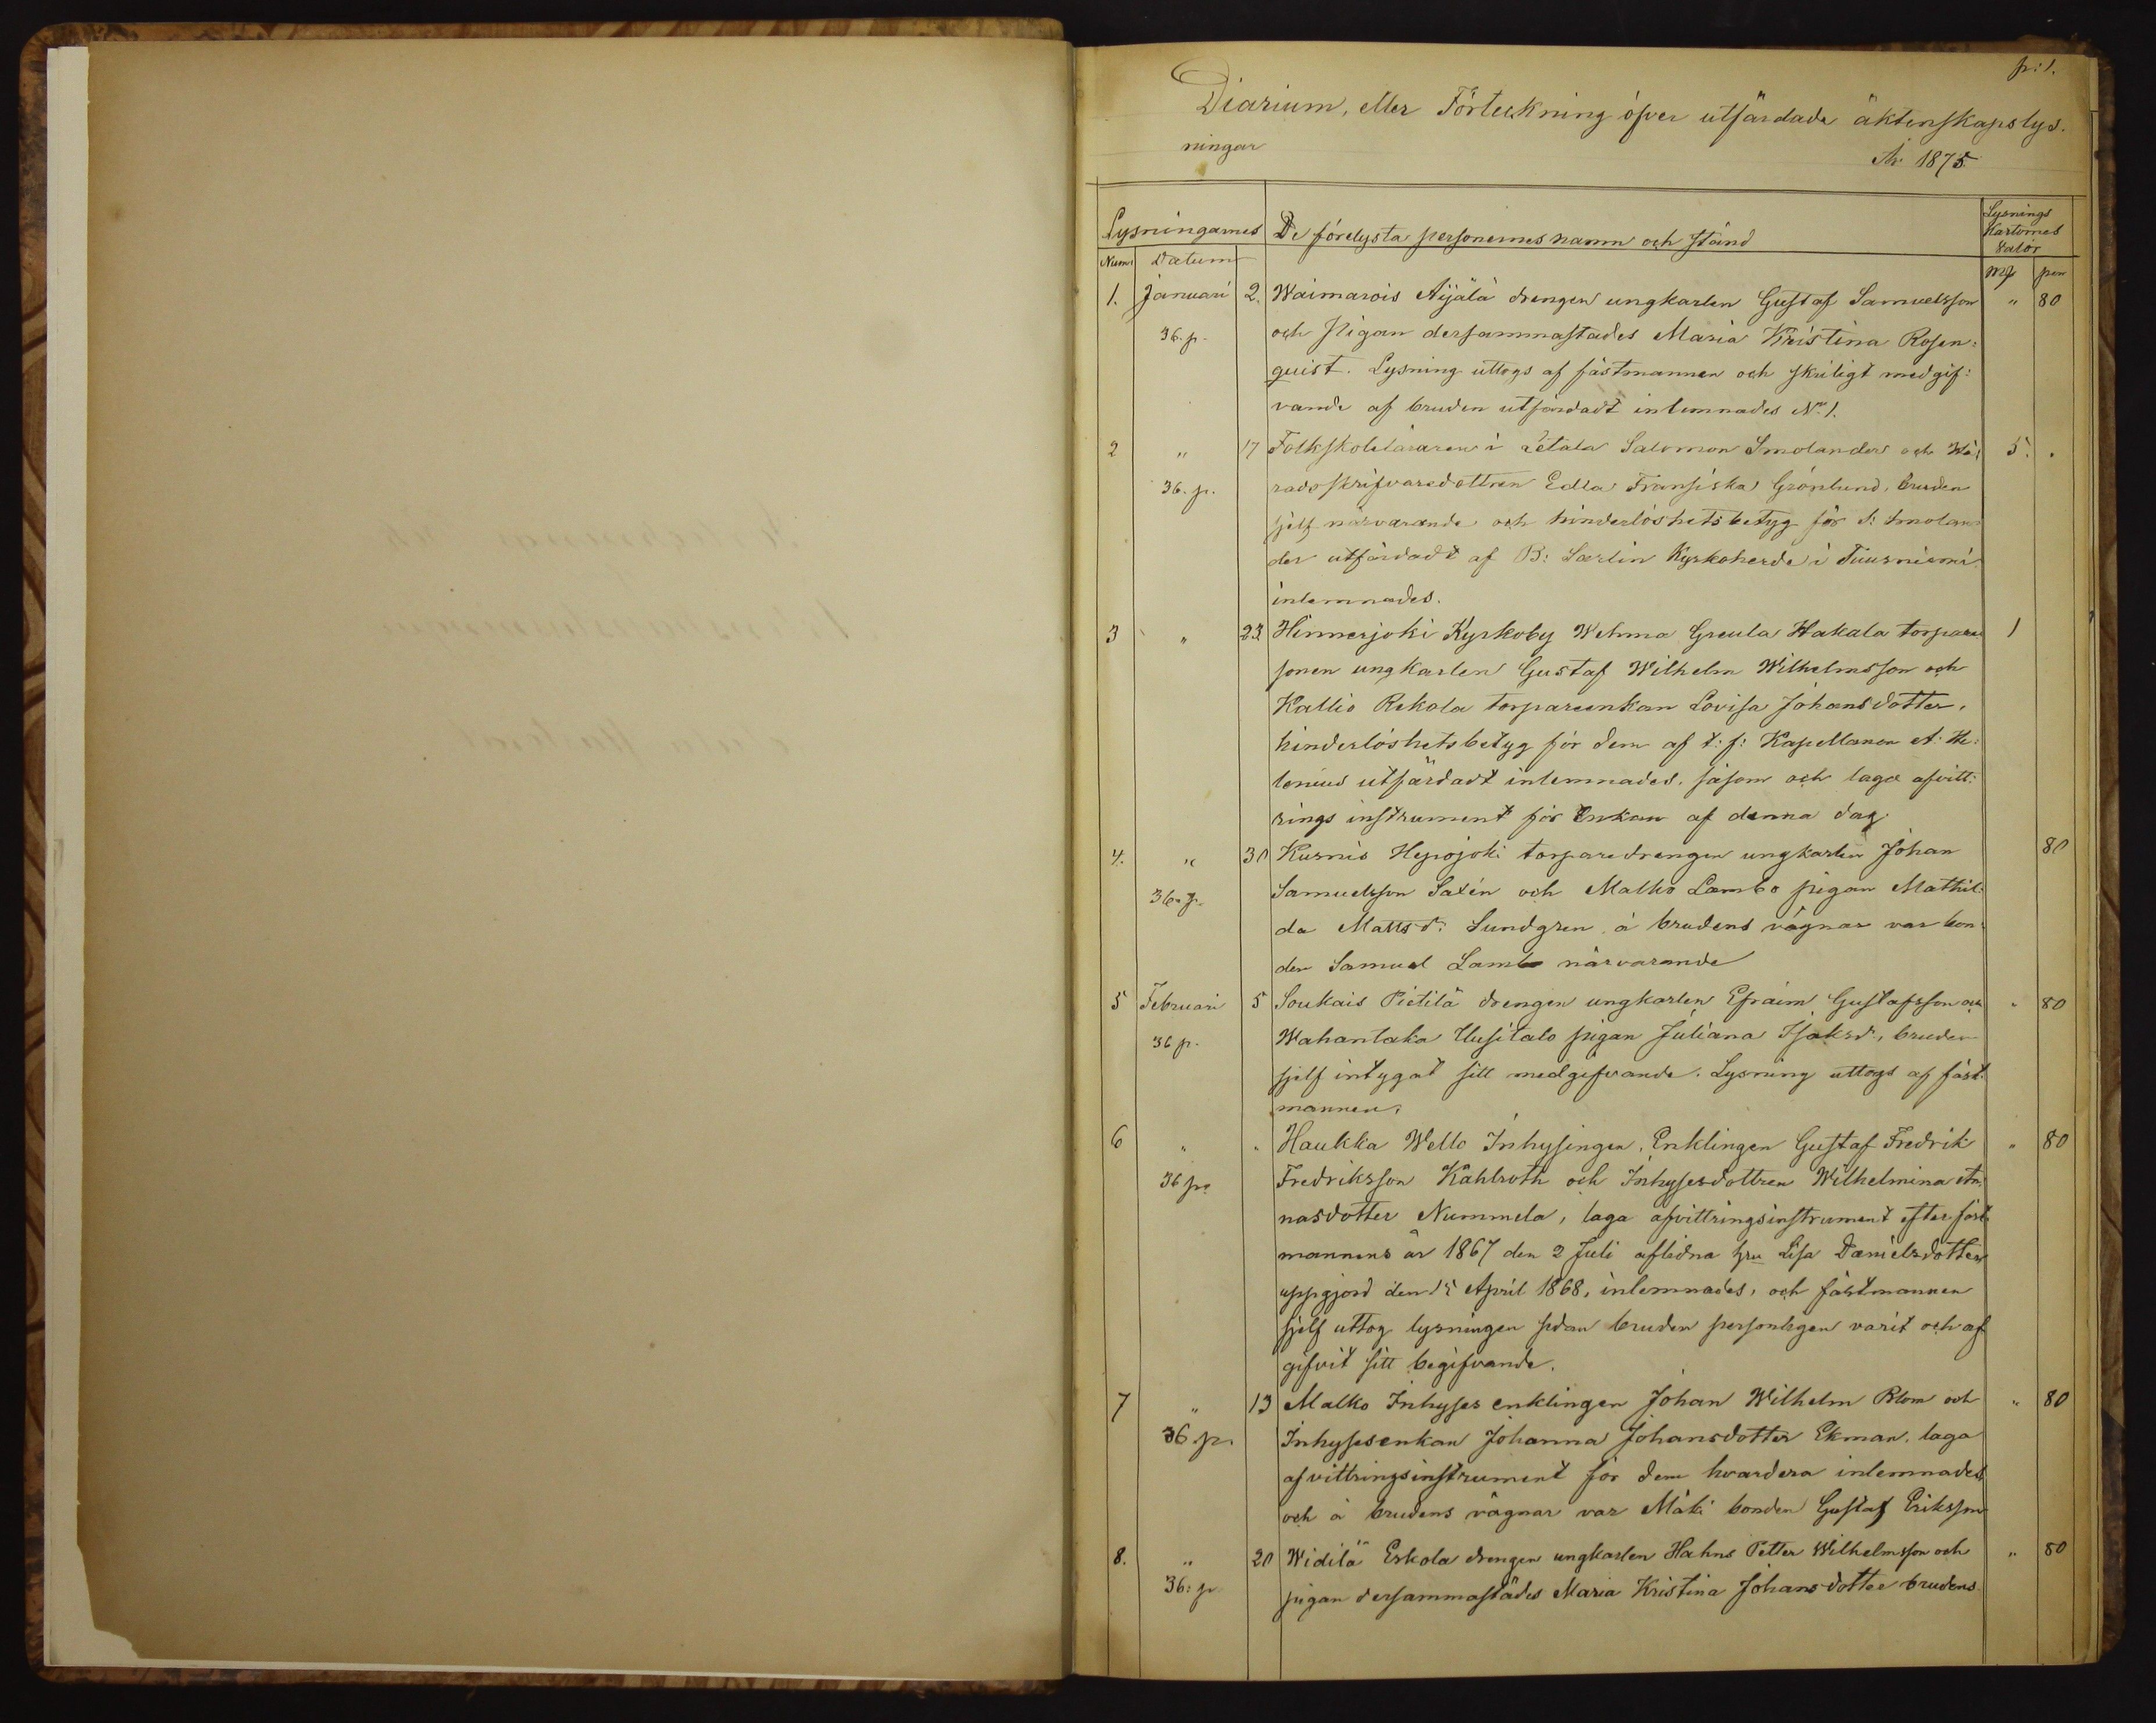 p: 1.
Diarium, eller Förteckning öfver utfärdade äktenskapslys-
ningar
År 1875
Lysningarnes De förelysta personernes namn och stånd Lysnings
Kartornes
valör
Num: Datum mk pen
1. Januari 2. Waimarois Äijälä drengen ungkarlen Gustaf Samuelsson " 80
36. p. och Pigan dersammastädes Maria Kristina Rosen:
quist. Lysning uttogs af fästmannen och skriligt medgif:
vande af bruden utfärdadt inlemnades No 1.
2 " 17 Folkskoleläraren i Letala Salomon Smolander och Hä: 5. .
36. p. radsskrifvaredottren Edla Fransiska Grönlund, bruden
sjelf närvarande och hinderlöshetsbetyg för S: Smolan:
der utfärdadt af B: Sarlin Kyrkoherde i Tuusniemi
inlemnades.
3 " 23 Hinnerjoki Kyrkoby Wehma Greula Hakala torpare 1
sonen ungkarlen Gustaf Wilhelm Wilhelmsson och
Kallio Rekola torpareenkan Lovisa Johansdotter,
hinderlöshetsbetyg för dem af t: f: Kapellanen A: He:
lenius utfärdadt inlemnades, såsom och laga afvitt:
rings instrument för Enkan af denna dag.
4. " 30 Kurnis Hepojoki torparedrengen ungkarlen Johan 80
36. p. Samuelsson Saxén och Malko Lambo pigan Mathil:
da Mattsd: Sundgren, å brudens vägnar var bon:
den Samuel Lambo närvarande
5 Februari 5 Soukais Pietilä drengen ungkarlen Efraim Gustafsson och " 80
36 p. Wahantaka Uusitalo pigan Juliana Isaksd:, bruden
sjelf intygat sitt medgifvande. Lysning uttogs af fäst:
mannen.
6 " " Haukka Wello Inhysingen, Enklingen Gustaf Fredrik " 80
36 p. Fredriksson Kåhlroth och Inhysesdottren Wilhelmina An:
nasdotter Nummela, laga afvittringsinstrument efter fäst
mannens år 1867 den 2 Juli aflidna hru Lisa Danielsdotter
uppgjord den 15 April 1868, inlemnades, och fästmannen
sjelf uttog lysningen sedan bruden personligen varit och af
gifvit sitt begifvande.
7 " 13 Malko Inhyses enklingen Johan Wilhelm Blom och " 80
36 p. Inhysesenkan Johanna Johansdotter Ekman, laga
afvittringsinstrument för dem hvardera inlemnades
och å brudens vägnar var Mäki bonden Gustaf Eriksson
8. " 20 Widilä Eskola drengen ungkarlen Hahns Petter Wilhelmsson och " 80
36: p. pigan dersammastädes Maria Kristina Johansdotter brudens